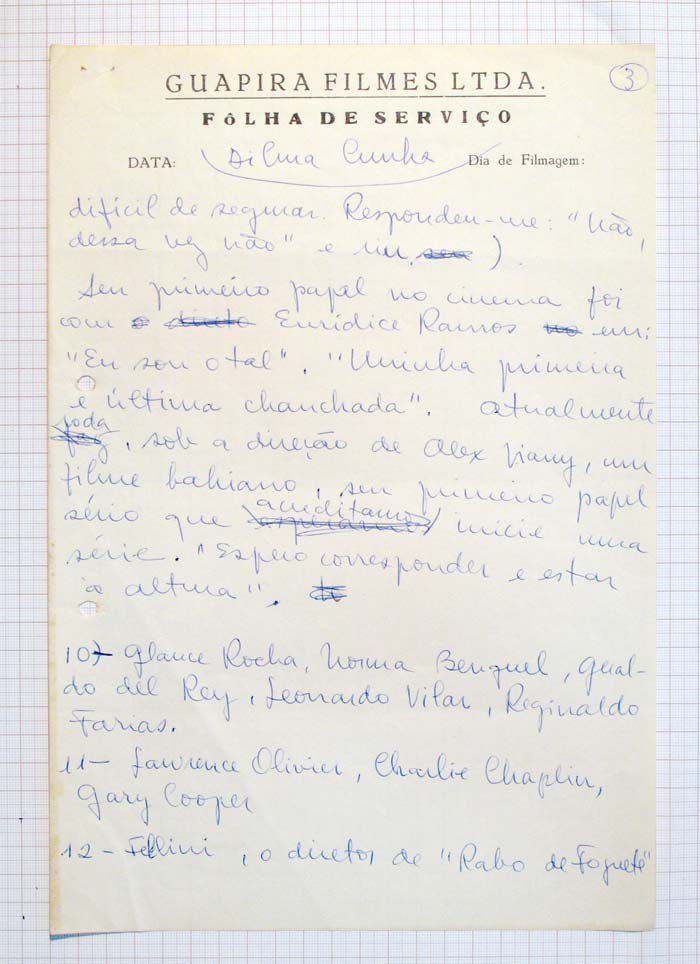 3
GUAPIRA FILMES LTDA.
FÔLHA DE SERVIÇO
DATA: Dilma Cunha Dia de Filmagem:
difícil de segurar. Respondeu-me: "Não,
dessa vez não" e riu )
Seu primeiro papel no cinema foi
com Eurídice Ramos em:
"Eu sou o tal". "Minha primeira
e última chanchada". Atualmente
roda
, sob a direção de Alex Viany, um
filme bahiano, seu primeiro papel
acreditamos
sério que inicie uma
série. "Espero corresponder e estar
à altura".
10- Glauce Rocha, Norma Benguel, Geral-
do del Rey, Leonardo Vilar, Reginaldo
Farias.
11- Lawrence Olivier, Charlie Chaplin,
Gary Cooper
12- Fellini, o diretor de "Rabo de Foguete"